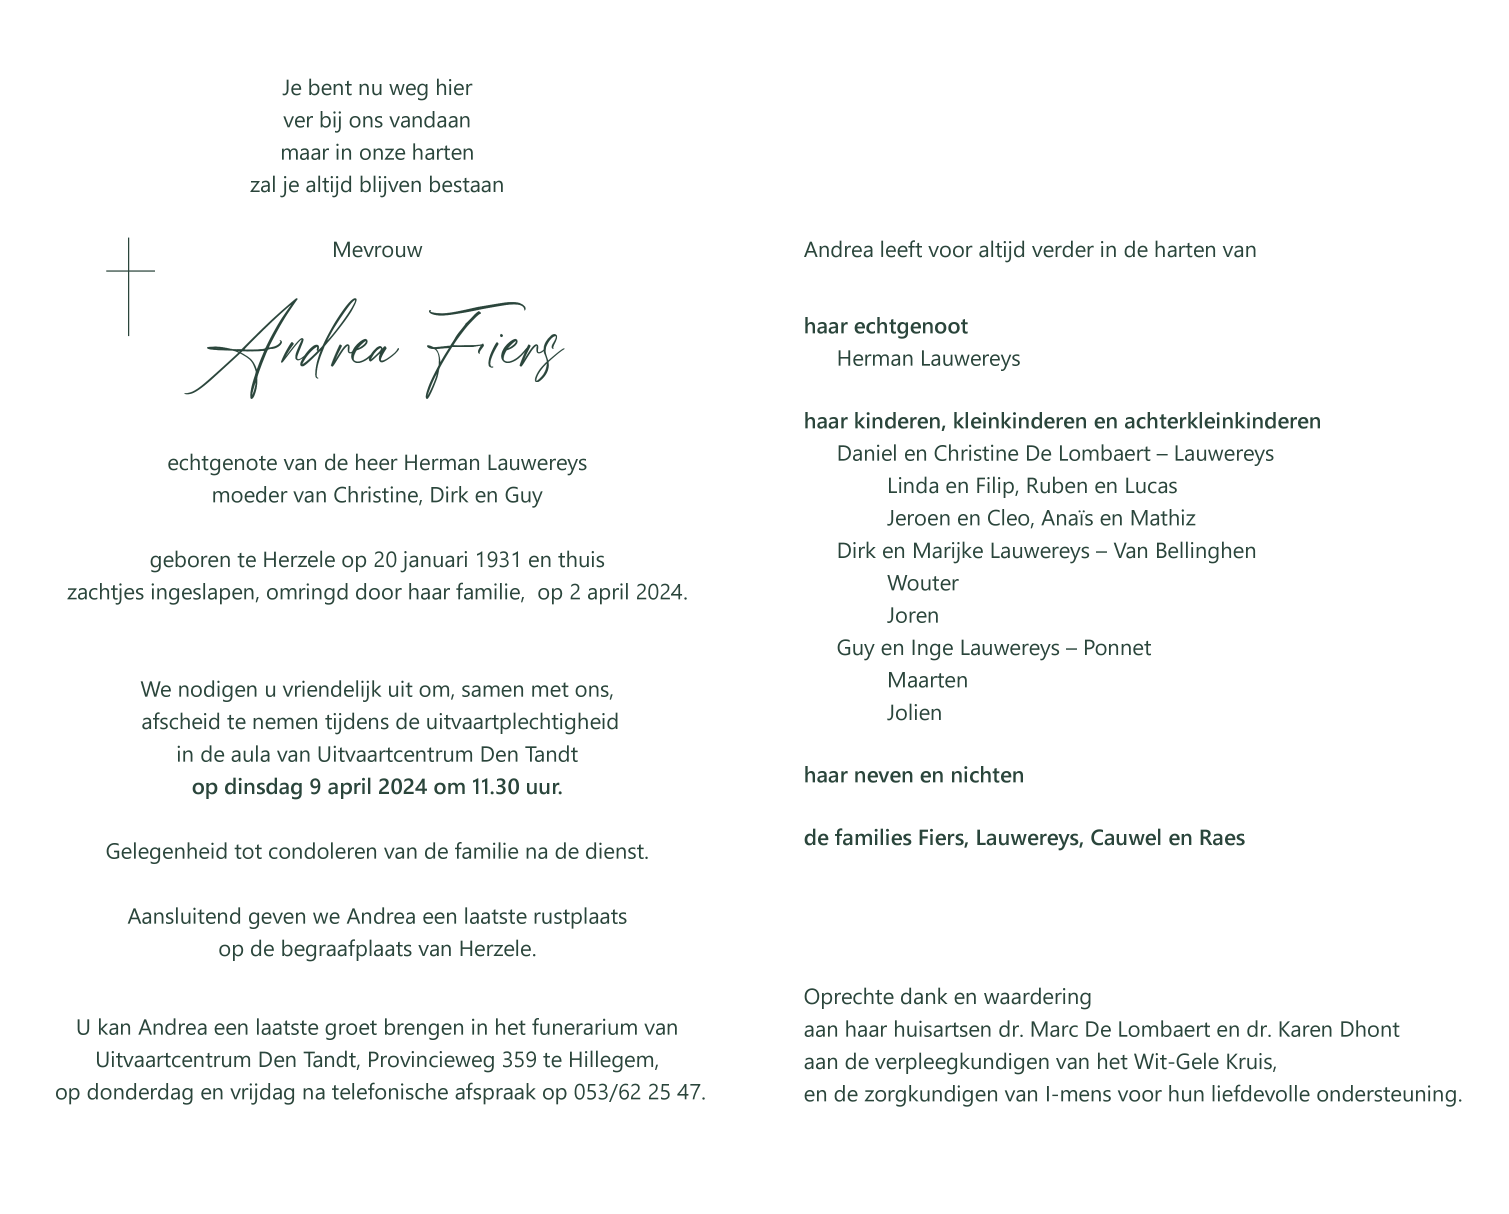 Je bent nu weg hier
ver bij ons vandaan
maar in onze harten
zal je altijd blijven bestaan
Mevrouw
Andrea Fiers
echtgenote van de heer Herman Lauwereys
moeder van Christine, Dirk en Guy
geboren te Herzele op 20 januari 1931 en thuis
zachtjes ingeslapen, omringd door haar familie,  op 2 april 2024.
We nodigen u vriendelijk uit om, samen met ons,
afscheid te nemen tijdens de uitvaartplechtigheid
in de aula van Uitvaartcentrum Den Tandt
op dinsdag 9 april 2024 om 11.30 uur.
Gelegenheid tot condoleren van de familie na de dienst.
Aansluitend geven we Andrea een laatste rustplaats
op de begraafplaats van Herzele.
U kan Andrea een laatste groet brengen in het funerarium van
Uitvaartcentrum Den Tandt, Provincieweg 359 te Hillegem,
op donderdag en vrijdag na telefonische afspraak op 053/62 25 47.
Andrea leeft voor altijd verder in de harten van
haar echtgenoot
Herman Lauwereys
haar kinderen, kleinkinderen en achterkleinkinderen
Daniel en Christine De Lombaert – Lauwereys
Linda en Filip, Ruben en Lucas
Jeroen en Cleo, Anaïs en Mathiz
Dirk en Marijke Lauwereys – Van Bellinghen
Wouter
Joren
Guy en Inge Lauwereys – Ponnet
Maarten
Jolien
haar neven en nichten
de families Fiers, Lauwereys, Cauwel en Raes
Oprechte dank en waardering
aan haar huisartsen dr. Marc De Lombaert en dr. Karen Dhont
aan de verpleegkundigen van het Wit-Gele Kruis,
en de zorgkundigen van I-mens voor hun liefdevolle ondersteuning.